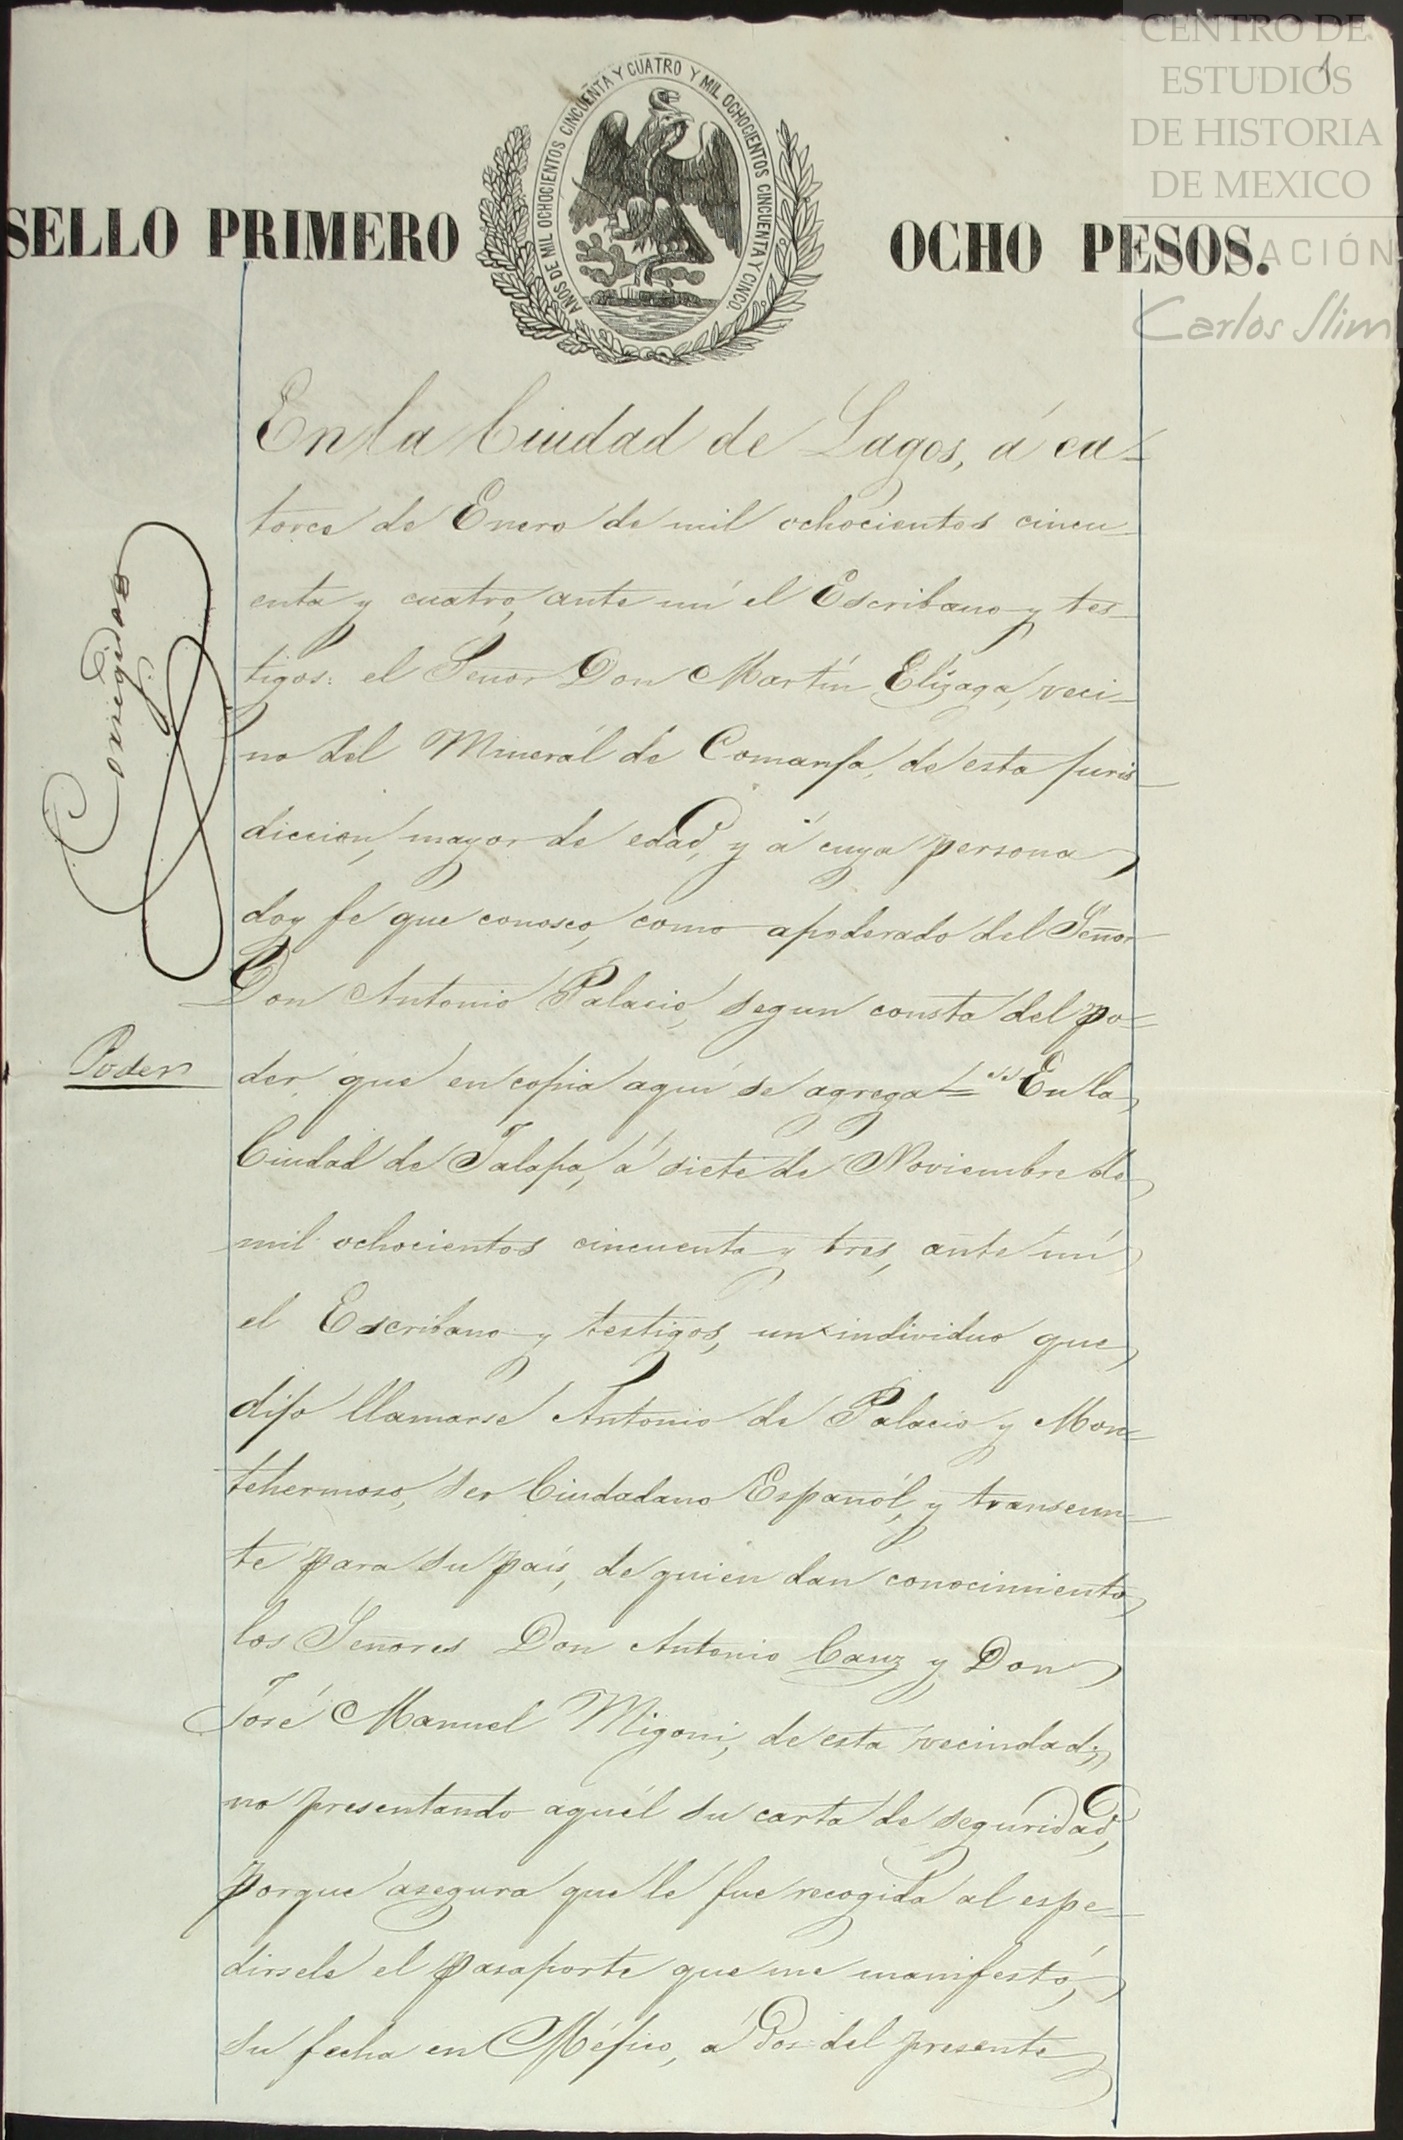 CENTRO DE
ESTUDIOS
DE HISTORIA
DE MEXICO
FUNDACIÓN
Carlos Slim
1
SELLO PRIMERO
AÑOS DE MIL OCHOCIENTOS CINCUENTA Y CUATRO Y MIL OCHOCIENTOS CINCUENTA Y CINCO
OCHO PESOS.
En la Ciudad de Lagos, á ca-
torce de Enero de mil ochocientos cincu-
enta y cuatro, ante mí el Escribano y tes-
tigos: el Señor Don Martín Elízaga, veci-
no del Minerál de Comanja, de esta juris-
diccion, mayor de edad, y á cuya persona
doy fe que conosco, como apoderado del Señor
Don Antonio Palacio, segun consta del po-
der, que en copia aquí se agrega = "En la
Ciudad de Jalapa, á siete de Noviembre de
mil ochocientos cincuenta y tres, ante mí
el Escribano y testigos, un individuo que
dijo llamarse Antonio de Palacio y Mon-
tehermoso, ser Ciudadano Español, y transeun-
te para su país, de quien dan conocimiento
los Señores Don Antonio Cauz y Don
José Manuel Migoni, de esta vecindad;
no presentando aquél su carta de seguridad,
porque asegura que le fue recogida al espe-
dirsele el pasaporte que me manifestó,
su fecha en Méjico, á dos del presente
Corregido
Poder